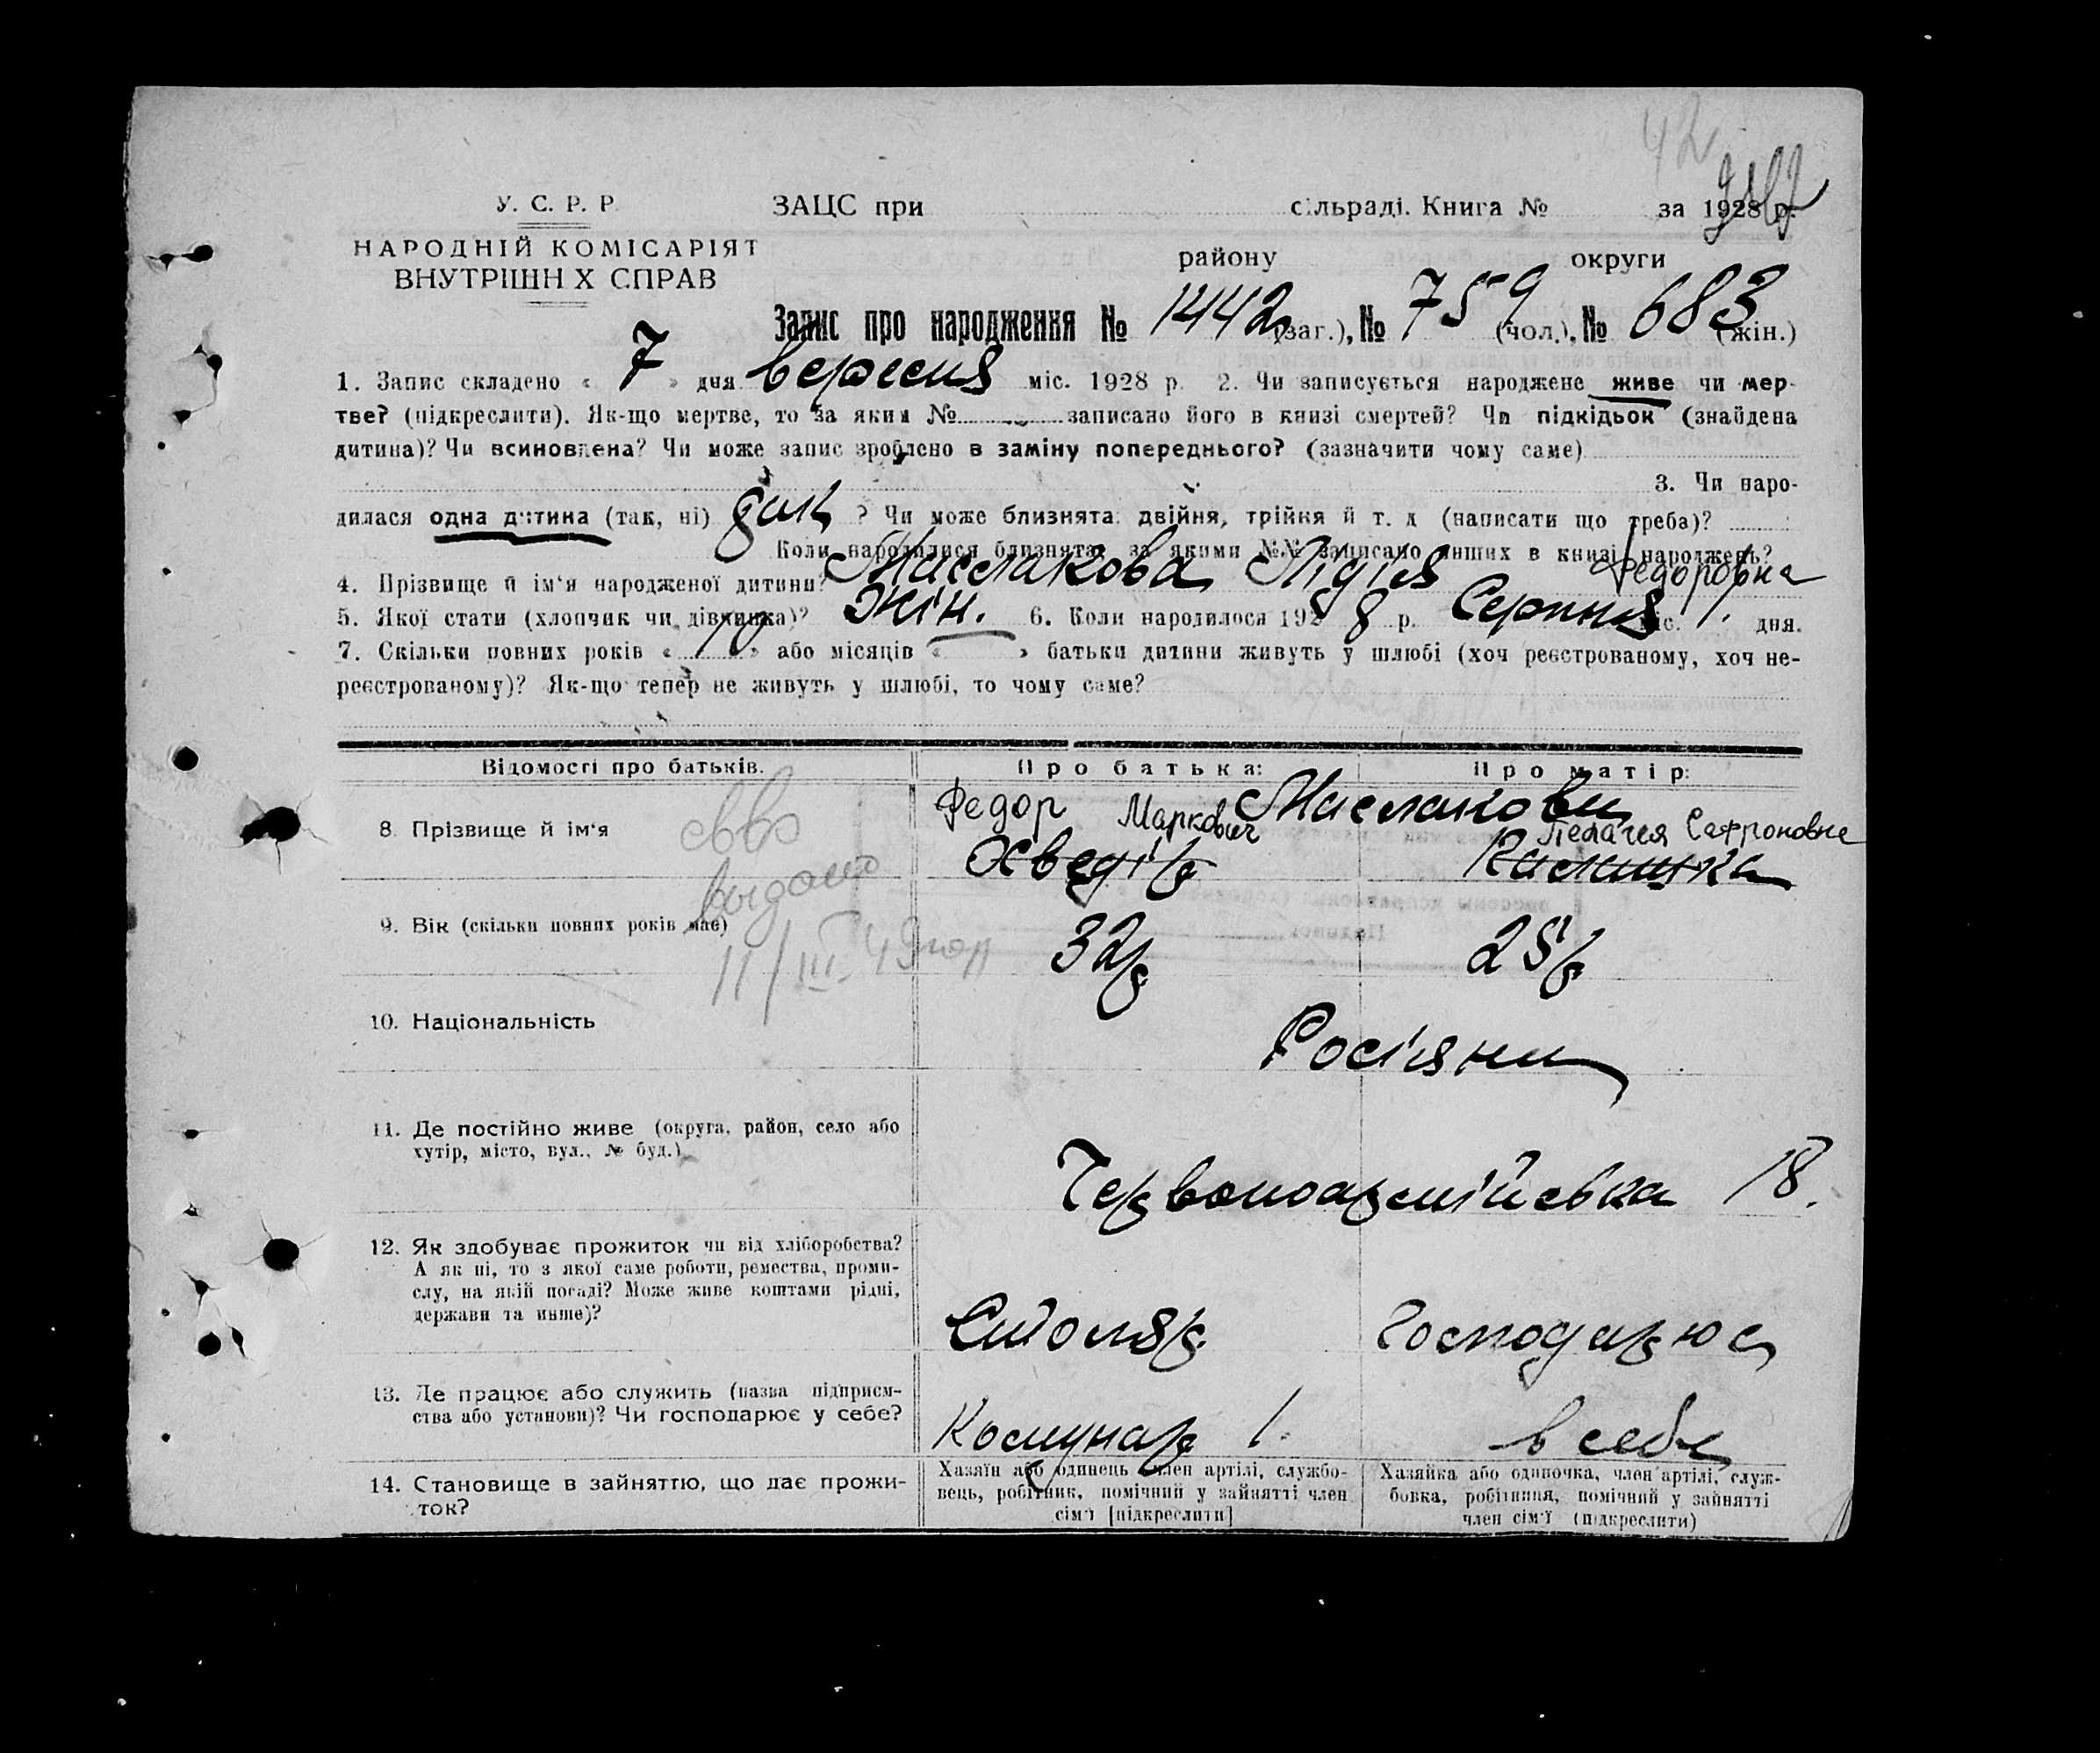 42
У. С. Р. Р.
ЗАЦС при сільраді. Книга № за 1928 р.
НАРОДНІЙ КОМІСАРІЯТ
ВНУТРІШН Х СПРАВ
району округи
Запис про народження № 1442 (заг.), № 759 (чол.), № 683 (жін.)
1. Запис складено « 7 » дня вересня міс. 1928 р. 2. Чи записується народжене живе чи мер-
тве? (підкреслити). Як-що мертве, то за яким № записано його в книзі смертей? Чи підкідьок (знайдена
дитина)? Чи всиновлена? Чи може запис зроблено в заміну попереднього? (зазначити чому саме)
3. Чи наро-
дилася одна дитина (так, ні) так ? Чи може близнята: двійня, трійня й т. д (написати що треба)?
Коли народилися близнята, за якими №№ записано инших в книзі народжень?
4. Прізвище й ім'я народженої дитини? Маслакова Лідія Федоровна
5. Якої стати (хлопчик чи дівчинка)? жін. 6. Коли народилося 1928 р. Серпня міс. 1. дня.
7. Скільки повних років « 10 » або місяців « — » батьки дитини живуть у шлюбі (хоч реєстрованому, хоч не-
реєстрованому)? Як-що тепер не живуть у шлюбі, то чому саме?
Відомості про батьків.
Про батька:
Про матір:
8. Прізвище й ім'я
Маслакови
Федор Маркович
Пелагия Сафроновна
выдано
11/III-49
9. Вік (скільки повних років має)
32р
25р
10. Національність
Росіяни
11. Де постійно живе (округа, район, село або
хутір, місто, вул., № буд.)
Червоноармійська 18.
12. Як здобуває прожиток чи від хліборобства?
А як ні, то з якої саме роботи, ремества, проми-
слу, на якій посаді? Може живе коштами рідні,
держави та инше)?
Столяр
Господарює
13. Де працює або служить (назва підприєм-
ства або установи)? Чи господарює у себе?
Комунар 1.
в себе
14. Становище в зайняттю, що дає прожи-
ток?
Хазяїн або одинець член артілі, службо-
вець, робітник, помічний у зайнятті член
сім'ї [підкреслити]
Хазяйка або одиночка, член артілі, служ-
бовка, робітниця, помічний у зайнятті
член сім'ї (підкреслити)